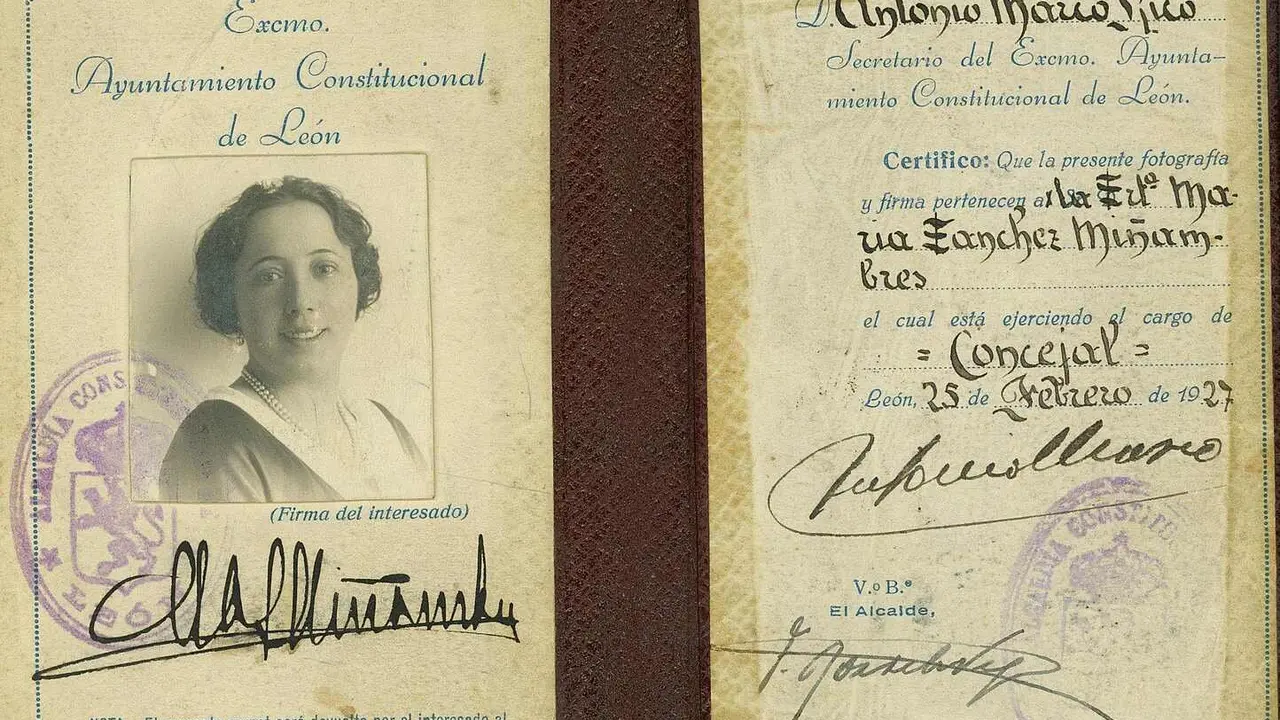 Excmo.
Ayuntamiento Constitucional
de León
(Firma del interesado)
D. Antonio Marco Rico
Secretario del Excmo. Ayunta-
miento Constitucional de León.
Certifico: Que la presente fotografía
y firma pertenecen a la Srtª Ma-
ria Sanchez Miñam-
bres
el cual está ejerciendo el cargo de
= Concejal =
León, 25 de Febrero de 1927
Antonio Marco
V.º B.º
El Alcalde,